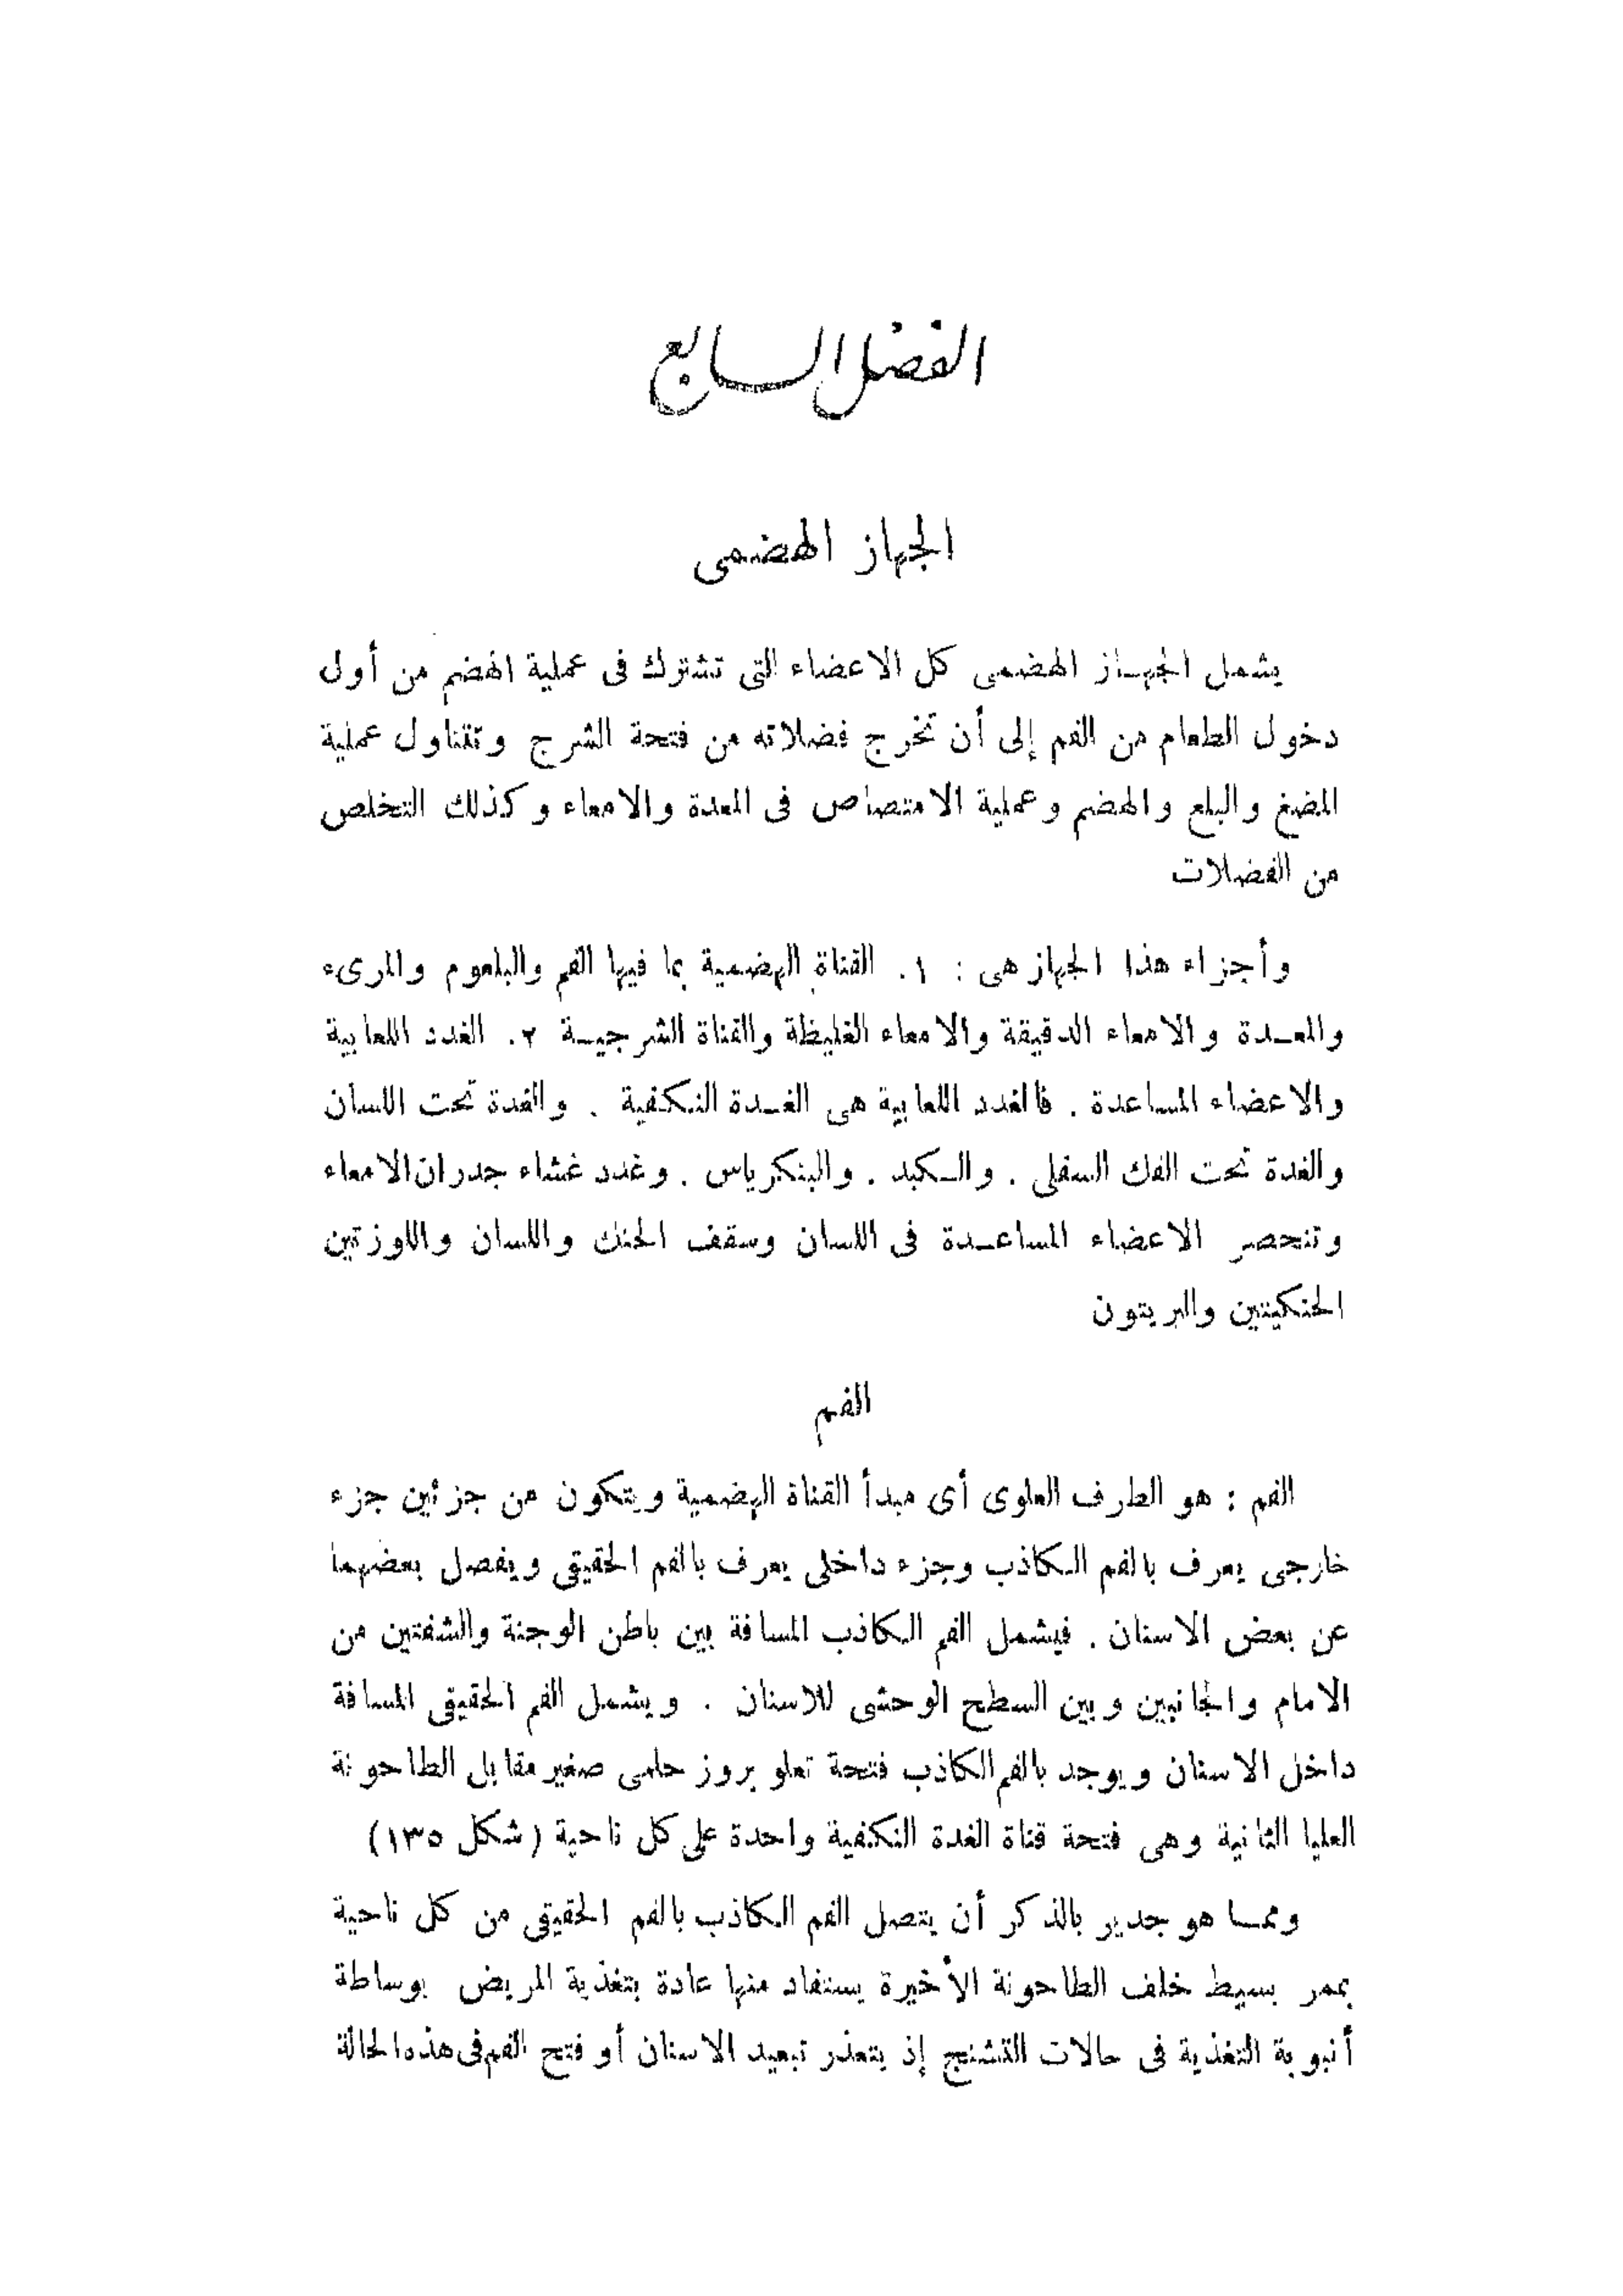 الفصل السابع
الجهاز الهضمى
يشمل الجهاز الهضمى كل الاعضاء التى تشترك فى عملية الهضم من أول
دخول الطعام من الفم إلى أن تخرج فضلاته من فتحة الشرج وتتناول عملية
المضغ والبلع والهضم وعملية الامتصاص فى المعدة والامعاء وكذلك التخلص
من الفضلات
وأجزاء هذا الجهاز هى : ١. القناة الهضمية بما فيها الفم والبلعوم والمرىء
والمعدة والامعاء الدقيقة والامعاء الغليظة والقناة الشرجية ٢. الغدد اللعابية
والاعضاء المساعدة . فالغدد اللعابية هى الغدة النكفية . والغدة تحت اللسان
والغدة تحت الفك السفلى . والكبد . والبنكرياس . وغدد غشاء جدران الامعاء
وتنحصر الاعضاء المساعدة فى اللسان وسقف الحنك واللسان واللوزتين
الحنكيتين والبريتون
الفم
الفم : هو الطرف العلوى أى مبدأ القناة الهضمية ويتكون من جزئين جزء
خارجى يعرف بالفم الكاذب وجزء داخلى يعرف بالفم الحقيقى ويفصل بعضهما
عن بعض الاسنان . فيشمل الفم الكاذب المسافة بين باطن الوجنة والشفتين من
الامام والجانبين وبين السطح الوحشى للاسنان . ويشمل الفم الحقيقى المسافة
داخل الاسنان ويوجد بالفم الكاذب فتحة تعلو بروز حلمى صغير مقابل الطاحونة
العليا الثانية وهى فتحة قناة الغدة النكفية واحدة على كل ناحية (شكل ١٣٥)
ومما هو جدير بالذكر أن يتصل الفم الكاذب بالفم الحقيقى من كل ناحية
بممر بسيط خلف الطاحونة الأخيرة يستفاد منها عادة بتغذية المريض بوساطة
أنبوبة التغذية فى حالات التشنج إذ يتعذر تبعيد الاسنان أو فتح الفم فى هذه الحالة